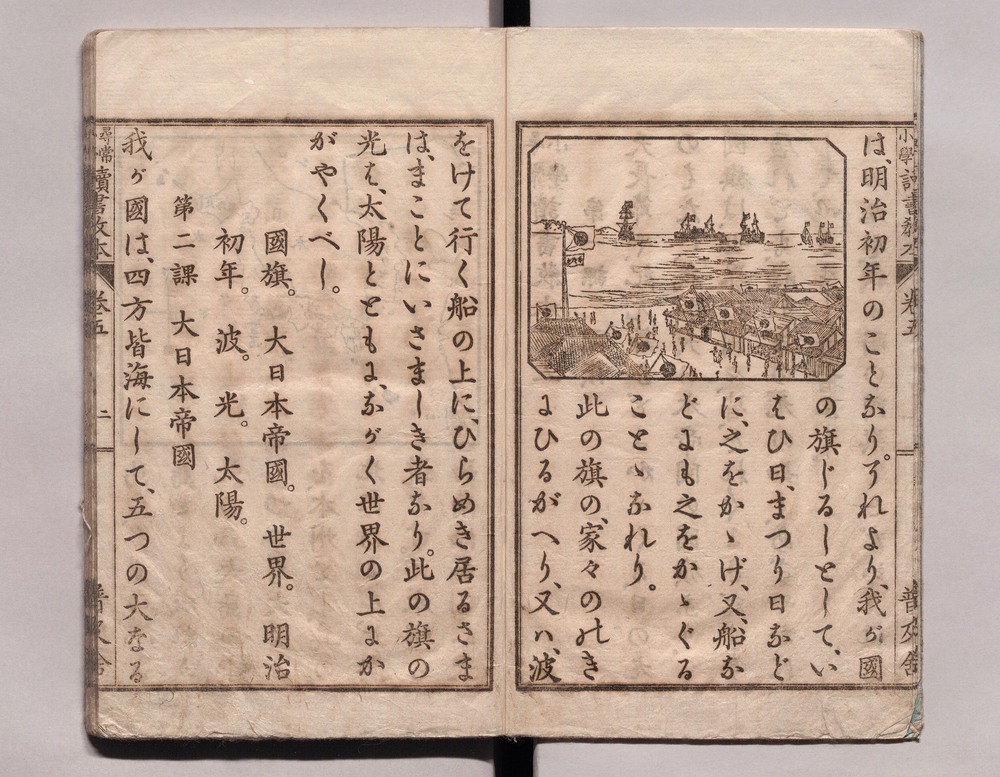 は、明治初年のことなり。それより、我が國
の旗じるしとして、い
はひ日、まつり日など
に、之をかゝげ、又、船な
どにも之をかゝぐる
ことゝなれり。
此の旗の、家々ののき
にひるがへり、又ハ、波
をけて行く船の上に、ひらめき居るさま
は、まことにいさましき者なり。此の旗の
光は、太陽とともに、ながく世界の上にか
がやくべし。
國旗。大日本帝國。世界。明治
初年。波。光。太陽。
第二課 大日本帝國
我が國は、四方皆海にして、五つの大なる
尋常小學讀書教本 卷五 二 普及舍